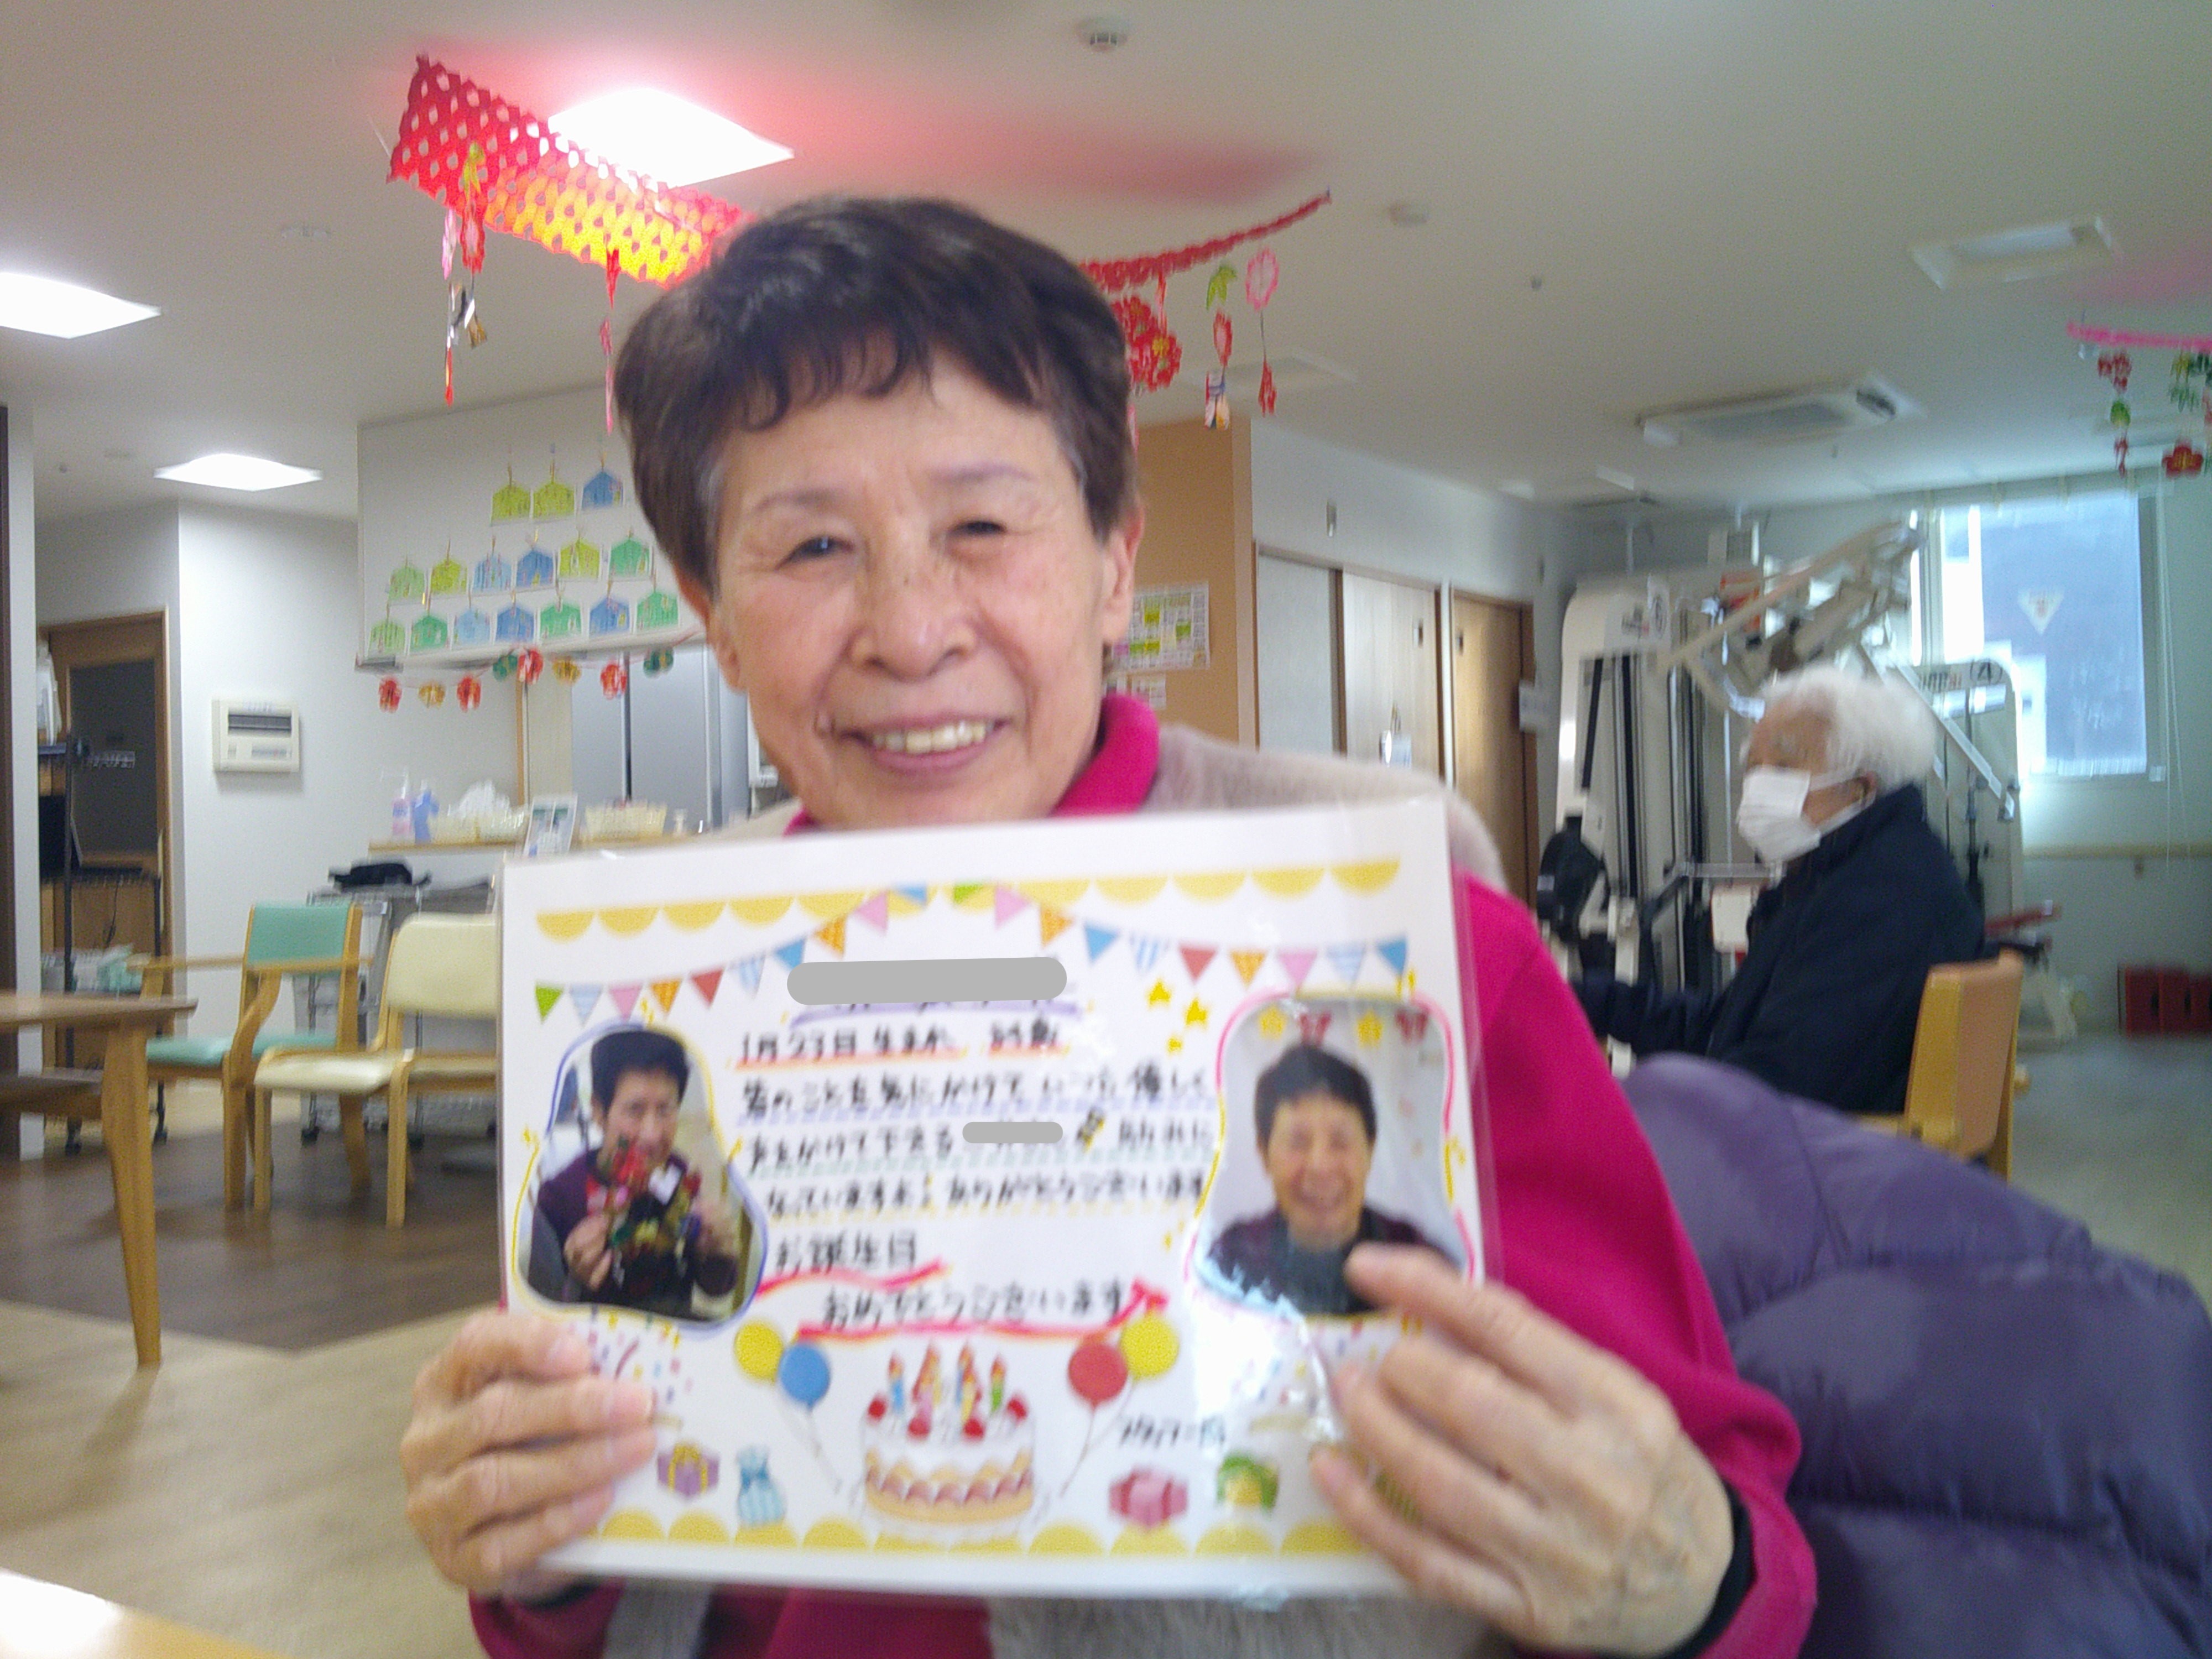 1月23日 生まれ
皆のことを気にかけて いつも 優しく
声をかけて下さる 助かに
なっていますよ♪ ありがとうございます
お誕生日
おめでとうございます
スタッフ一同